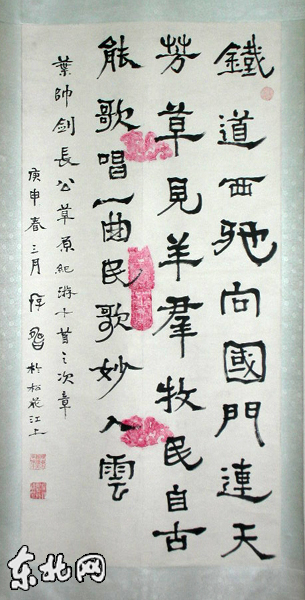 鐵道西馳向國門連天
芳草見羊羣牧民自古
能歌唱一曲民歌妙入雲
葉帥劍長公草原紀游十首之次章
庚申春三月
於松花江上
东北网